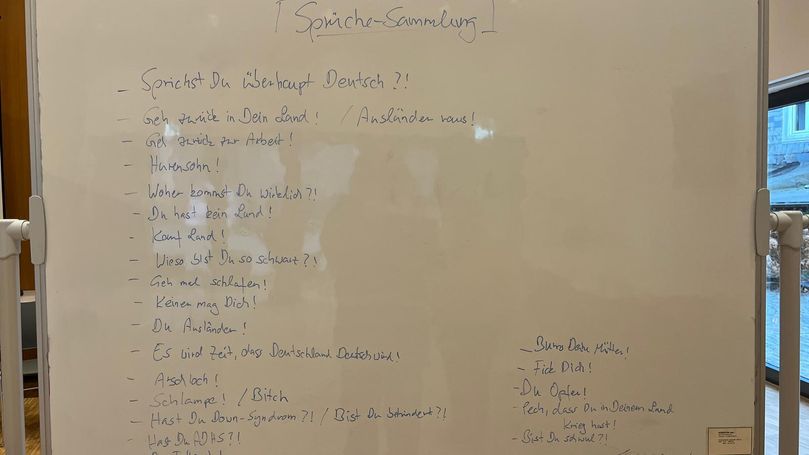 [Sprüche-Sammlung]
- Sprichst Du überhaupt Deutsch?!
- Geh zurück in Dein Land! / Ausländer raus!
- Geh zurück zur Arbeit!
- Hurensohn!
- Woher kommst Du wirklich?!
- Du hast kein Land!
- Land!
- Wieso bist Du so schwarz?!
- Geh mal schlafen!
- Keiner mag Dich!
- Du Ausländer!
- Es wird Zeit, dass Deutschland Deutsch wird!
- Arschloch!
- Schlampe! / Bitch
- Hast Du Down-Syndrom?! / Bist Du behindert?!
- Hast Du ADHS?!
- Mutter!
- Fick Dich!
- Du Opfer!
- Pech, dass Du in Deinem Land
Krieg hast!
- Bist Du schwul?!